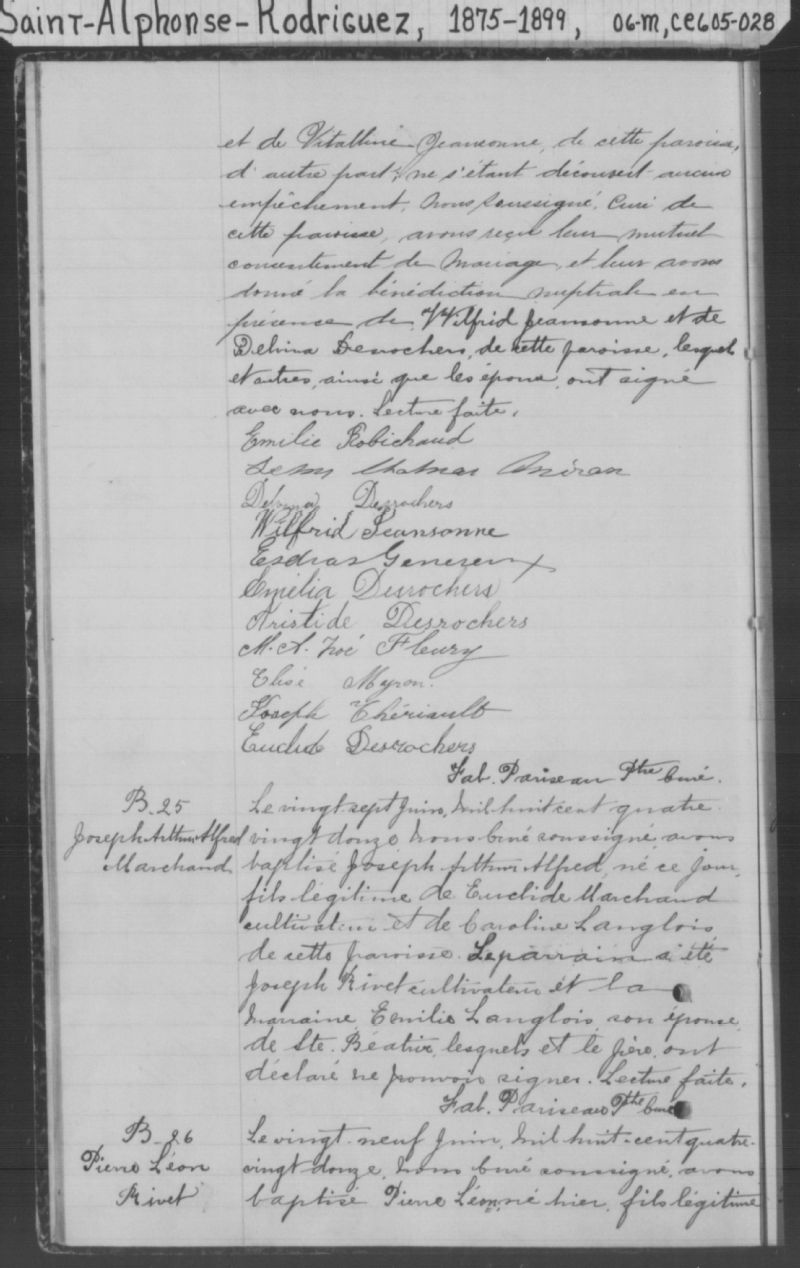 Saint-Alphonse-Rodriguez, 1875-1899, 06-M, CE605-028
et de Vitalline Jeansonne, de cette paroisse,
d'autre part; ne s'étant découvert aucun
empêchement, Nous soussigné, Curé de
cette paroisse, avons reçu leur mutuel
consentement de Mariage, et leur avons
donné la bénédiction nuptiale en
présence de Wilfrid Jeansonne et de
Delvina Desrochers, de cette paroisse, lesquels
et autres, ainsi que les époux, ont signé
avec nous. Lecture faite.
Emilie Robichaud
Delvina Desrochers
Wilfrid Jeansonne
Esdras Genereux
Emélia Desrochers
Aristide Desrochers
M. A. Zoé Fleury
Elise Myron.
Joseph Thériault
Euclide Desrochers
Fab. Pariseau Ptre Curé.
B. 25
Joseph Arthur Alfred
Marchand
Le vingt-sept Juin, mil huit cent quatre-
vingt douze, Nous Curé soussigné, avons
baptisé Joseph Arthur Alfred, né ce jour,
fils légitime de Euclide Marchand
cultivateur et de Caroline Langlois,
de cette paroisse. Le parrain a été
Joseph Rivet cultivateur et la
Marraine Emilie Langlois, son épouse,
de Ste. Béatrix, lesquels et le père, ont
déclaré ne pouvoir signer. Lecture faite.
Fab. Pariseau Ptre Curé
B. 26
Pierre Léon
Rivet
Le vingt-neuf Juin, mil huit-cent quatre-
vingt douze, Nous Curé soussigné, avons
baptisé Pierre Léon, né hier, fils légitime